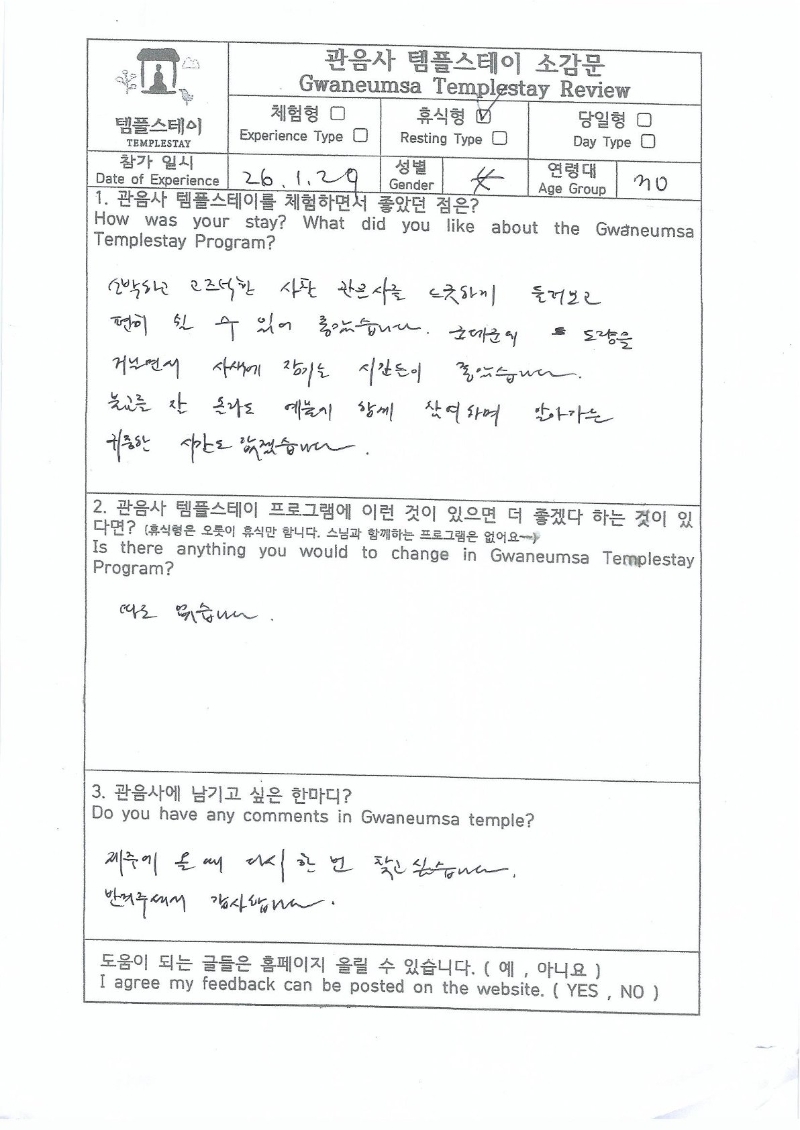 템플스테이
TEMPLESTAY
관음사 템플스테이 소감문
Gwaneumsa Templestay Review
체험형 □
Experience Type □
휴식형 ☑
Resting Type □
당일형 □
Day Type □
참가 일시
Date of Experience
26.1.29
성별
Gender
연령대
Age Group
1. 관음사 템플스테이를 체험하면서 좋았던 점은?
How was your stay? What did you like about the Gwaneumsa
Templestay Program?
소박하고 고즈넉한 사찰 관음사를 느긋하게 둘러보고
편히 쉴 수 있어 좋았습니다. 군데군데 도량을
거닐면서 사색에 잠기는 시간들이 좋았습니다.
불교를 잘 몰라도 예불기 함께 참여하며 알아가는
귀중한 시간도 가졌습니다.
2. 관음사 템플스테이 프로그램에 이런 것이 있으면 더 좋겠다 하는 것이 있
다면? (휴식형은 오롯이 휴식만 합니다. 스님과 함께하는 프로그램은 없어요~~)
Is there anything you would to change in Gwaneumsa Templestay
Program?
따로 없습니다.
3. 관음사에 남기고 싶은 한마디?
Do you have any comments in Gwaneumsa temple?
제주에 올 때 다시 한 번 찾고 싶습니다.
반겨주셔서 감사합니다.
도움이 되는 글들은 홈페이지 올릴 수 있습니다. ( 예 , 아니요 )
I agree my feedback can be posted on the website. ( YES , NO )